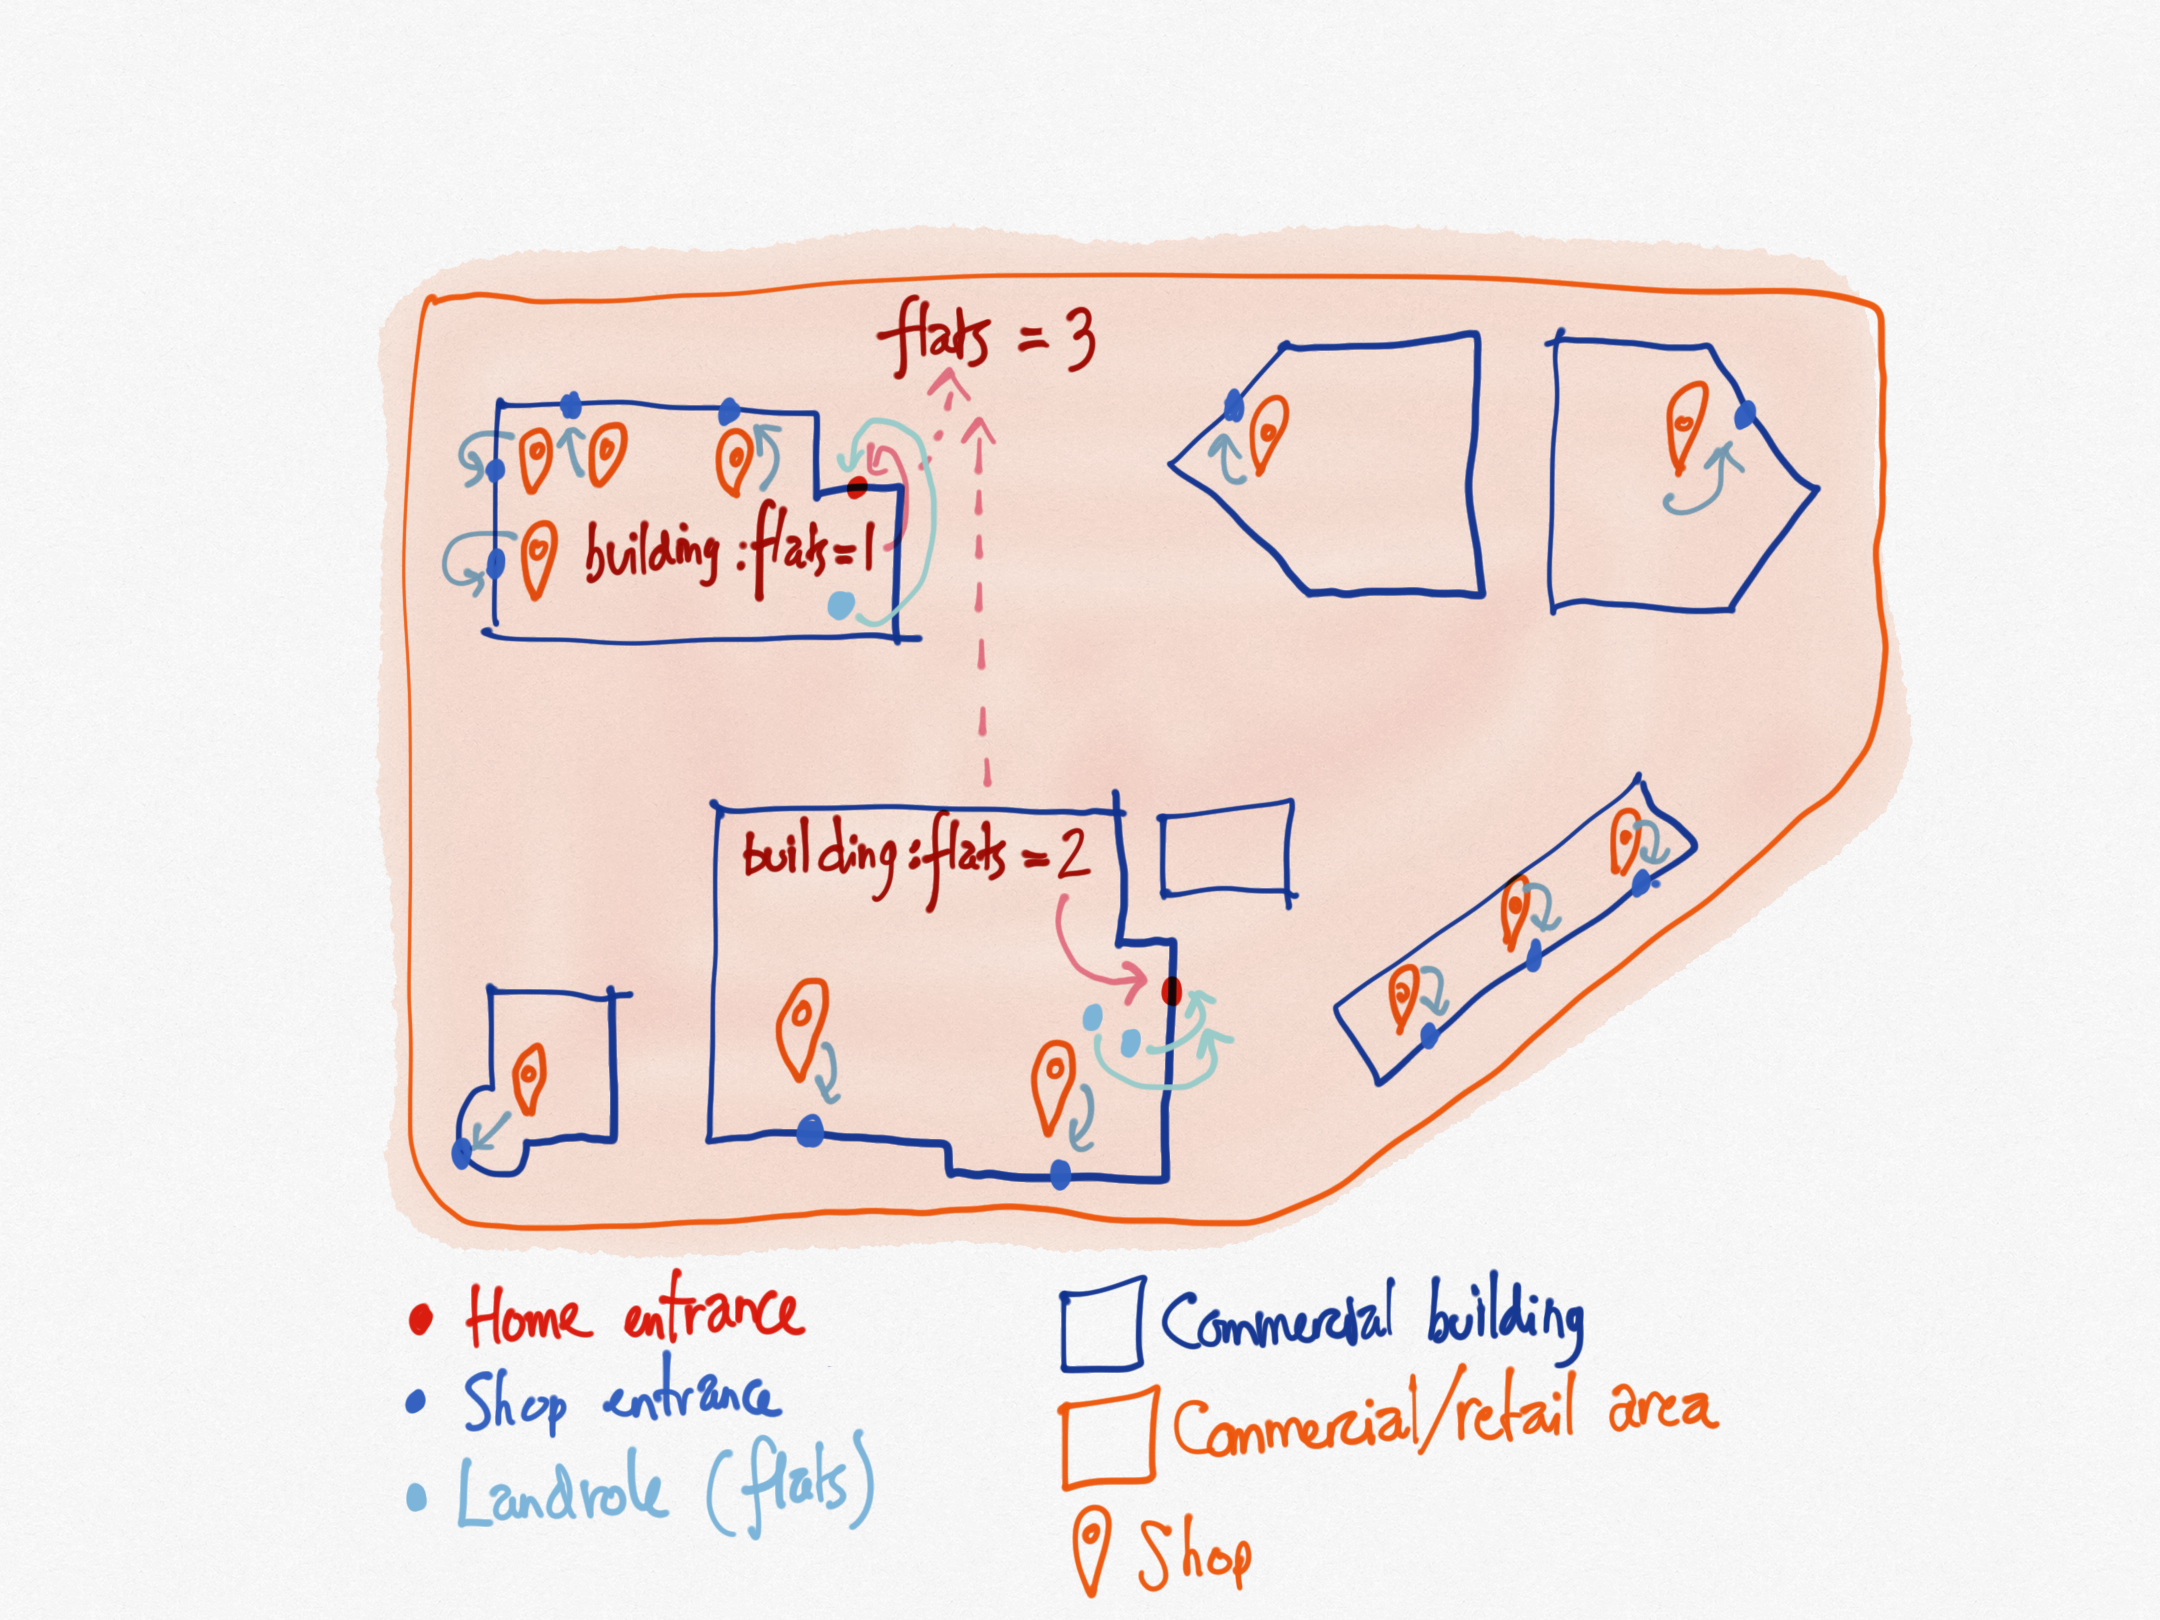 flats = 3
building:flats=1
building:flats=2
Home entrance
Shop entrance
Landrole (flats)
Commercial building
Commercial/retail area
Shop